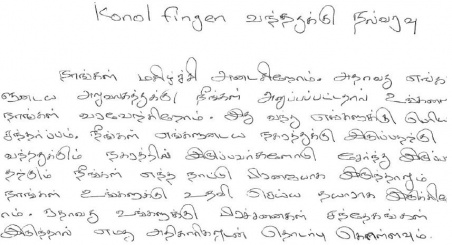 Konolfingen வந்ததுக்கு நல்வரவு
நாங்கள் மகிழ்ச்சி அடைகிறோம். அதாவது எங்க
ளுடைய அலுவலகத்துக்கு நீங்கள் அனுப்பப்பட்டதால் உங்களை
நாங்கள் வரவேற்கிறோம். இது வந்து எங்களுக்கு பெரிய
சந்தர்ப்பம். நீங்கள் எங்களுடைய நகரத்துக்கு இருப்பதற்கு
வந்ததுக்கும் நகரத்தில் இருப்பவர்களோடு சேர்ந்து இருப
தற்கும் நீங்கள் எந்த நாட்டு பிரஜையாக இருந்தாலும்
நாங்கள் உங்களுக்கு உதவி செய்ய தயாராக இருக்கிறோ
ம். ஏதாவது உங்களுக்கு பிரச்சனைகள் சந்தேகங்கள்
இருந்தால் எமது அதிகாரிகளுடன் தொடர்பு கொள்ளவும்.